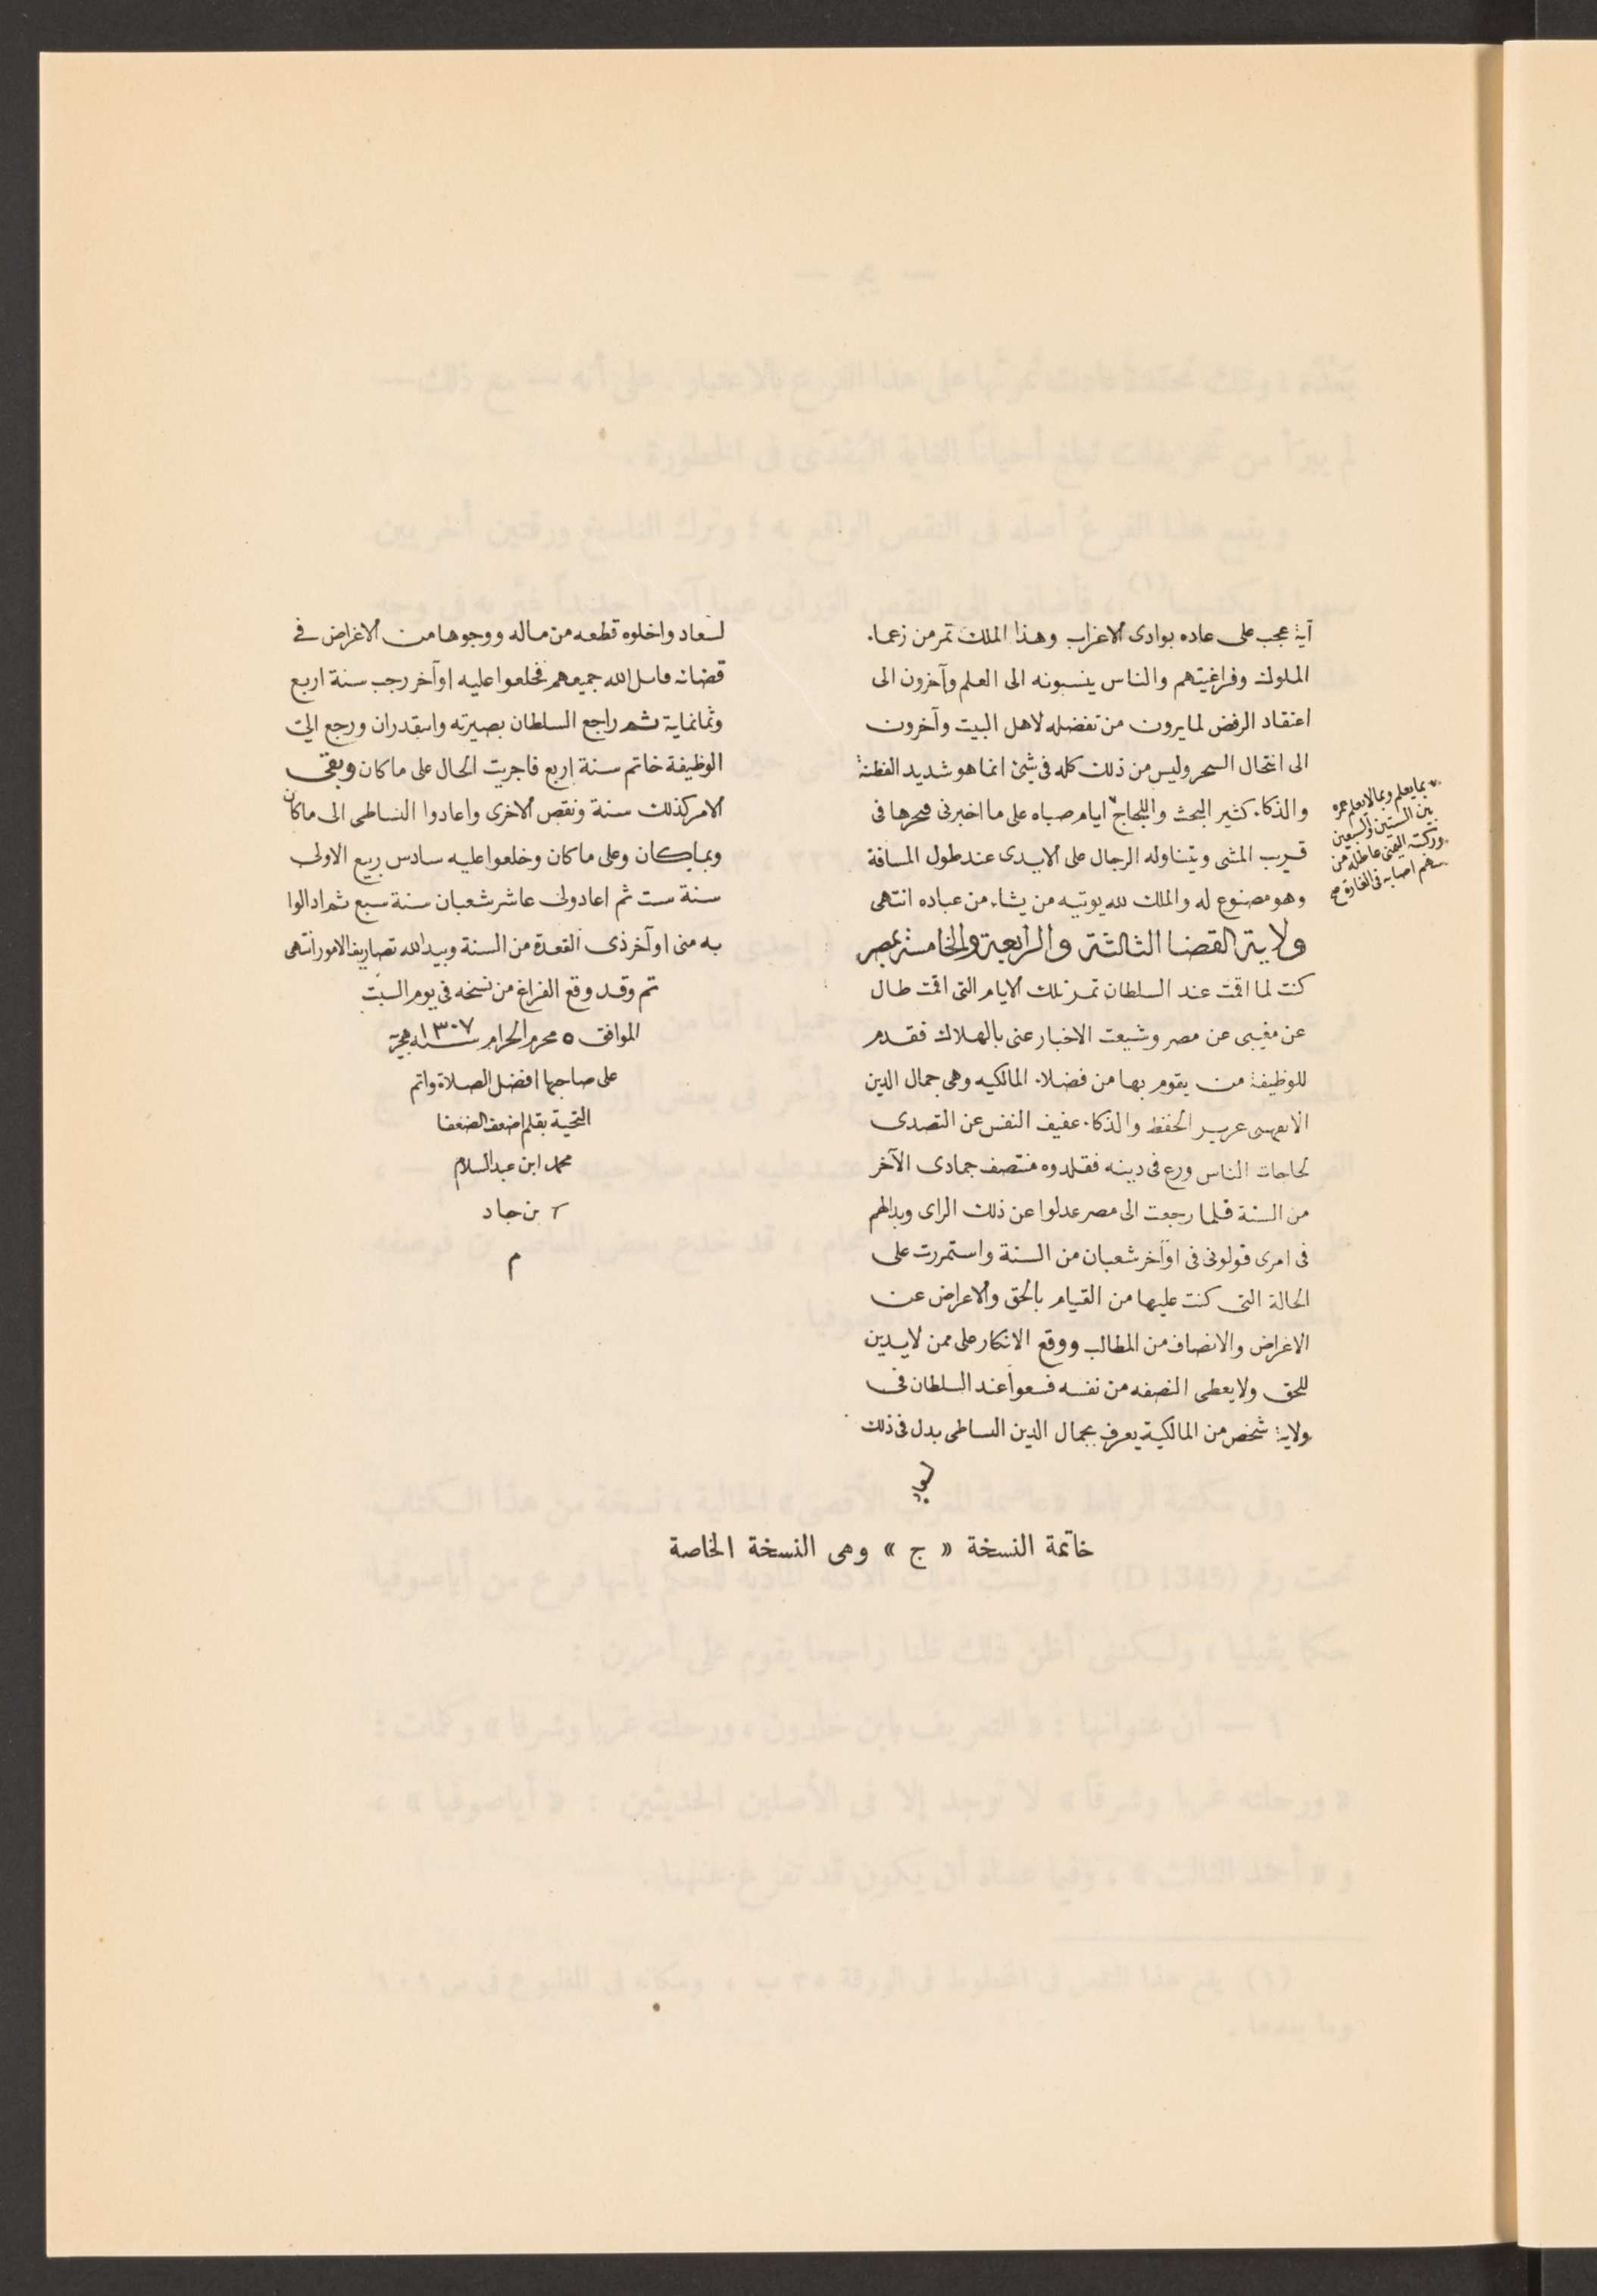 آية عجب على عاده بوادى الاعراب وهذا الملك تمر من زعما.
الملوك وفراغيتهم والناس ينسبونه الى العلم وآخرون الى
اعتقاد الرفض لما يرون من تفضله لاهل البيت وآخرون
الى انتحال السحر وليس من ذلك كله فى شئ انما هو شديد الفطنة
والذكا. كثير البحث واللجاج ايام صباه على ما اخبرنى فيجرها فى
قريب المشى ويتناوله الرجال على الايدى عند طول المسافة
وهو مصنوع له والملك لله يوتيه من يشاء من عباده انتهى
ولاية القضا الثالثة والرابعة والخامسة بمصر
كنت لما اقمت عند السلطان تمر تلك الايام التى اقمت طال
عن مغيبى عن مصر وشيعت الاخبار عنى بالهلاك فقدم
للوظيفة من يقوم بها من فضلا. المالكيه وهى جمال الدين
الاقفهسى عرير الحفظ والذكا. عفيف النفس عن التصدى
لحاجات الناس ورع فى دينه فقلدوه منتصف جمادى الآخر
من السنة فلما رجعت الى مصر عدلوا عن ذلك الراى وبدالهم
فى امرى فولونى فى اوآخر شعبان من السنة واستمررت على
الحالة التى كنت عليها من القيام بالحق والاعراض عن
الاغراض والانصاف من المطالب ووقع الانكار على ممن لايدين
للحق ولا يعطى النصفه من نفسه فسعوا عند السلطان فى
ولاية شخص من المالكية يعرف بجمال الدين البساطى بدل فى ذلك
بما يعلم وبما لا يعلم عمره
بين الستين والسبعين
وركبته اليمنى عاطلة من
سهم اصابه فى الغارة صح
لسعاد واخلوه قطعه من ماله ووجوها من الاغراض فى
قضائه قاتل الله جميعهم فخلعوا عليه اوآخر رجب سنة اربع
وثمانماية ثم راجع السلطان بصيرته وانتقد رأن ورجع الى
الوظيفة خاتم سنة اربع فاجريت الحال على ما كان وبقى
الامر كذلك سنة ونقص الاخرى واعادوا البساطى الى ما كان
وبما كان وعلى ما كان وخلعوا عليه سادس ربيع الاولى
سنة ست ثم اعادونى عاشر شعبان سنة سبع ثم ادالوا
به منى اوآخر ذى القعدة من السنة وبيد الله تصاريف الامور انتهى
تم وقد وقع الفراغ من نسخه فى يوم السبت
الموافق ٥ محرم الحرام سنة ١٣٠٧ هجرية
على صاحبها افضل الصلاة واتم
التحية بقلم اضعف الضعفا
محمد ابن عبد السلام
بن جاد
م
خاتمة النسخة « ج » وهى النسخة الخاصة